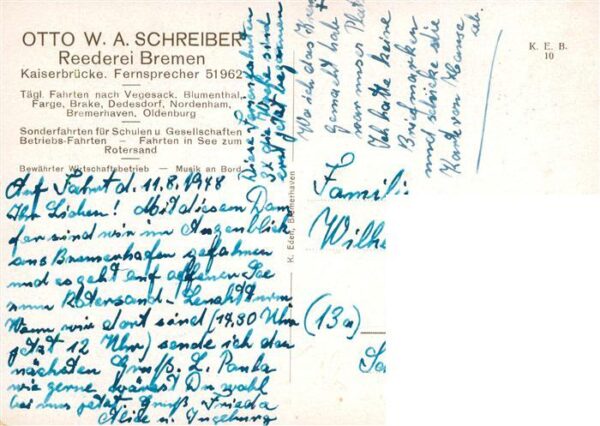 OTTO W. A. SCHREIBER
Reederei Bremen
Kaiserbrücke. Fernsprecher 51962
Tägl. Fahrten nach Vegesack. Blumenthal,
Farge, Brake, Dedesdorf, Nordenham,
Bremerhaven, Oldenburg
Sonderfahrten für Schulen u. Gesellschaften
Betriebs-Fahrten — Fahrten in See zum
Rotersand
Bewährter Wirtschaftsbetrieb — Musik an Bord
Auf Fahrt d. 11.8.1948
Ihr Lieben! Mit diesem Dam
fer sind wir im Augenblick
aus Bremerhafen gefahren
und es geht auf offener See
zum Rotersand-Leuchtturm
Wann wir dort sind (14.30 Uhr
jetzt 12 Uhr) sende ich den
nächsten Gruß. L. Paula
wie gerne wärest Du wohl
bei uns jetzt. Gruß Frieda
u. Ingeburg
Diese
sind
jetzt begonnen
Wo ich das Kreuz
gemacht habe
war unser Platz
Ich hatte keine
Briefmarken
und schicke die
Karte von Hause
ab.
H. Eden, Bremerhaven
K. E. B.
10
Famili
Wilhe
(13a)